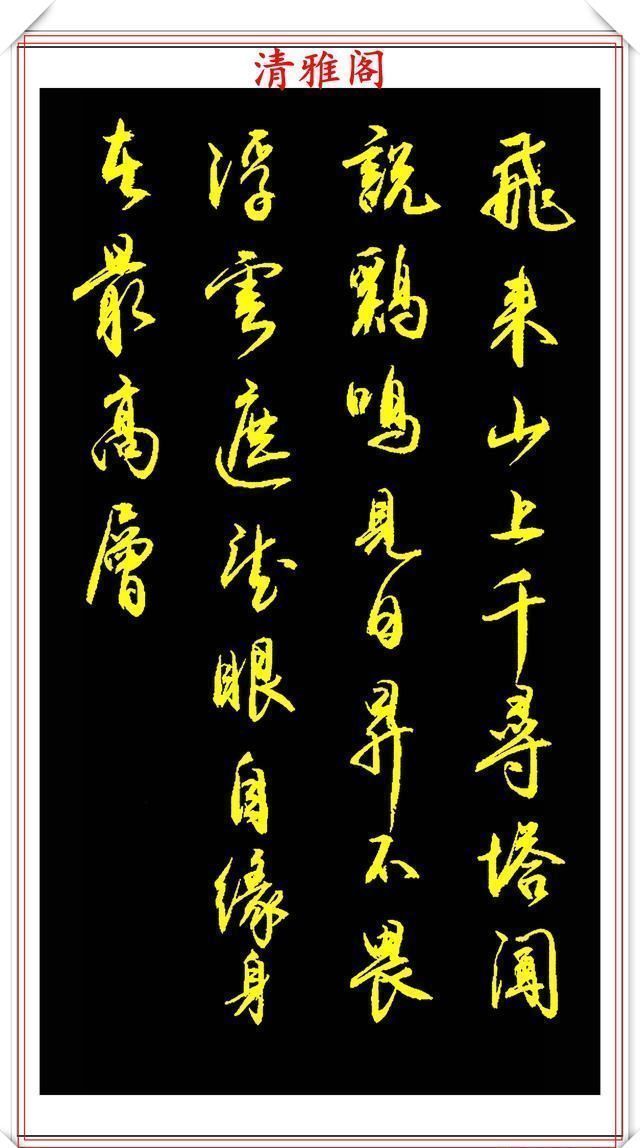 清雅阁
飛来山上千尋塔聞
説鷄鳴見日昇不畏
浮雲遮望眼自緣身
在最高層